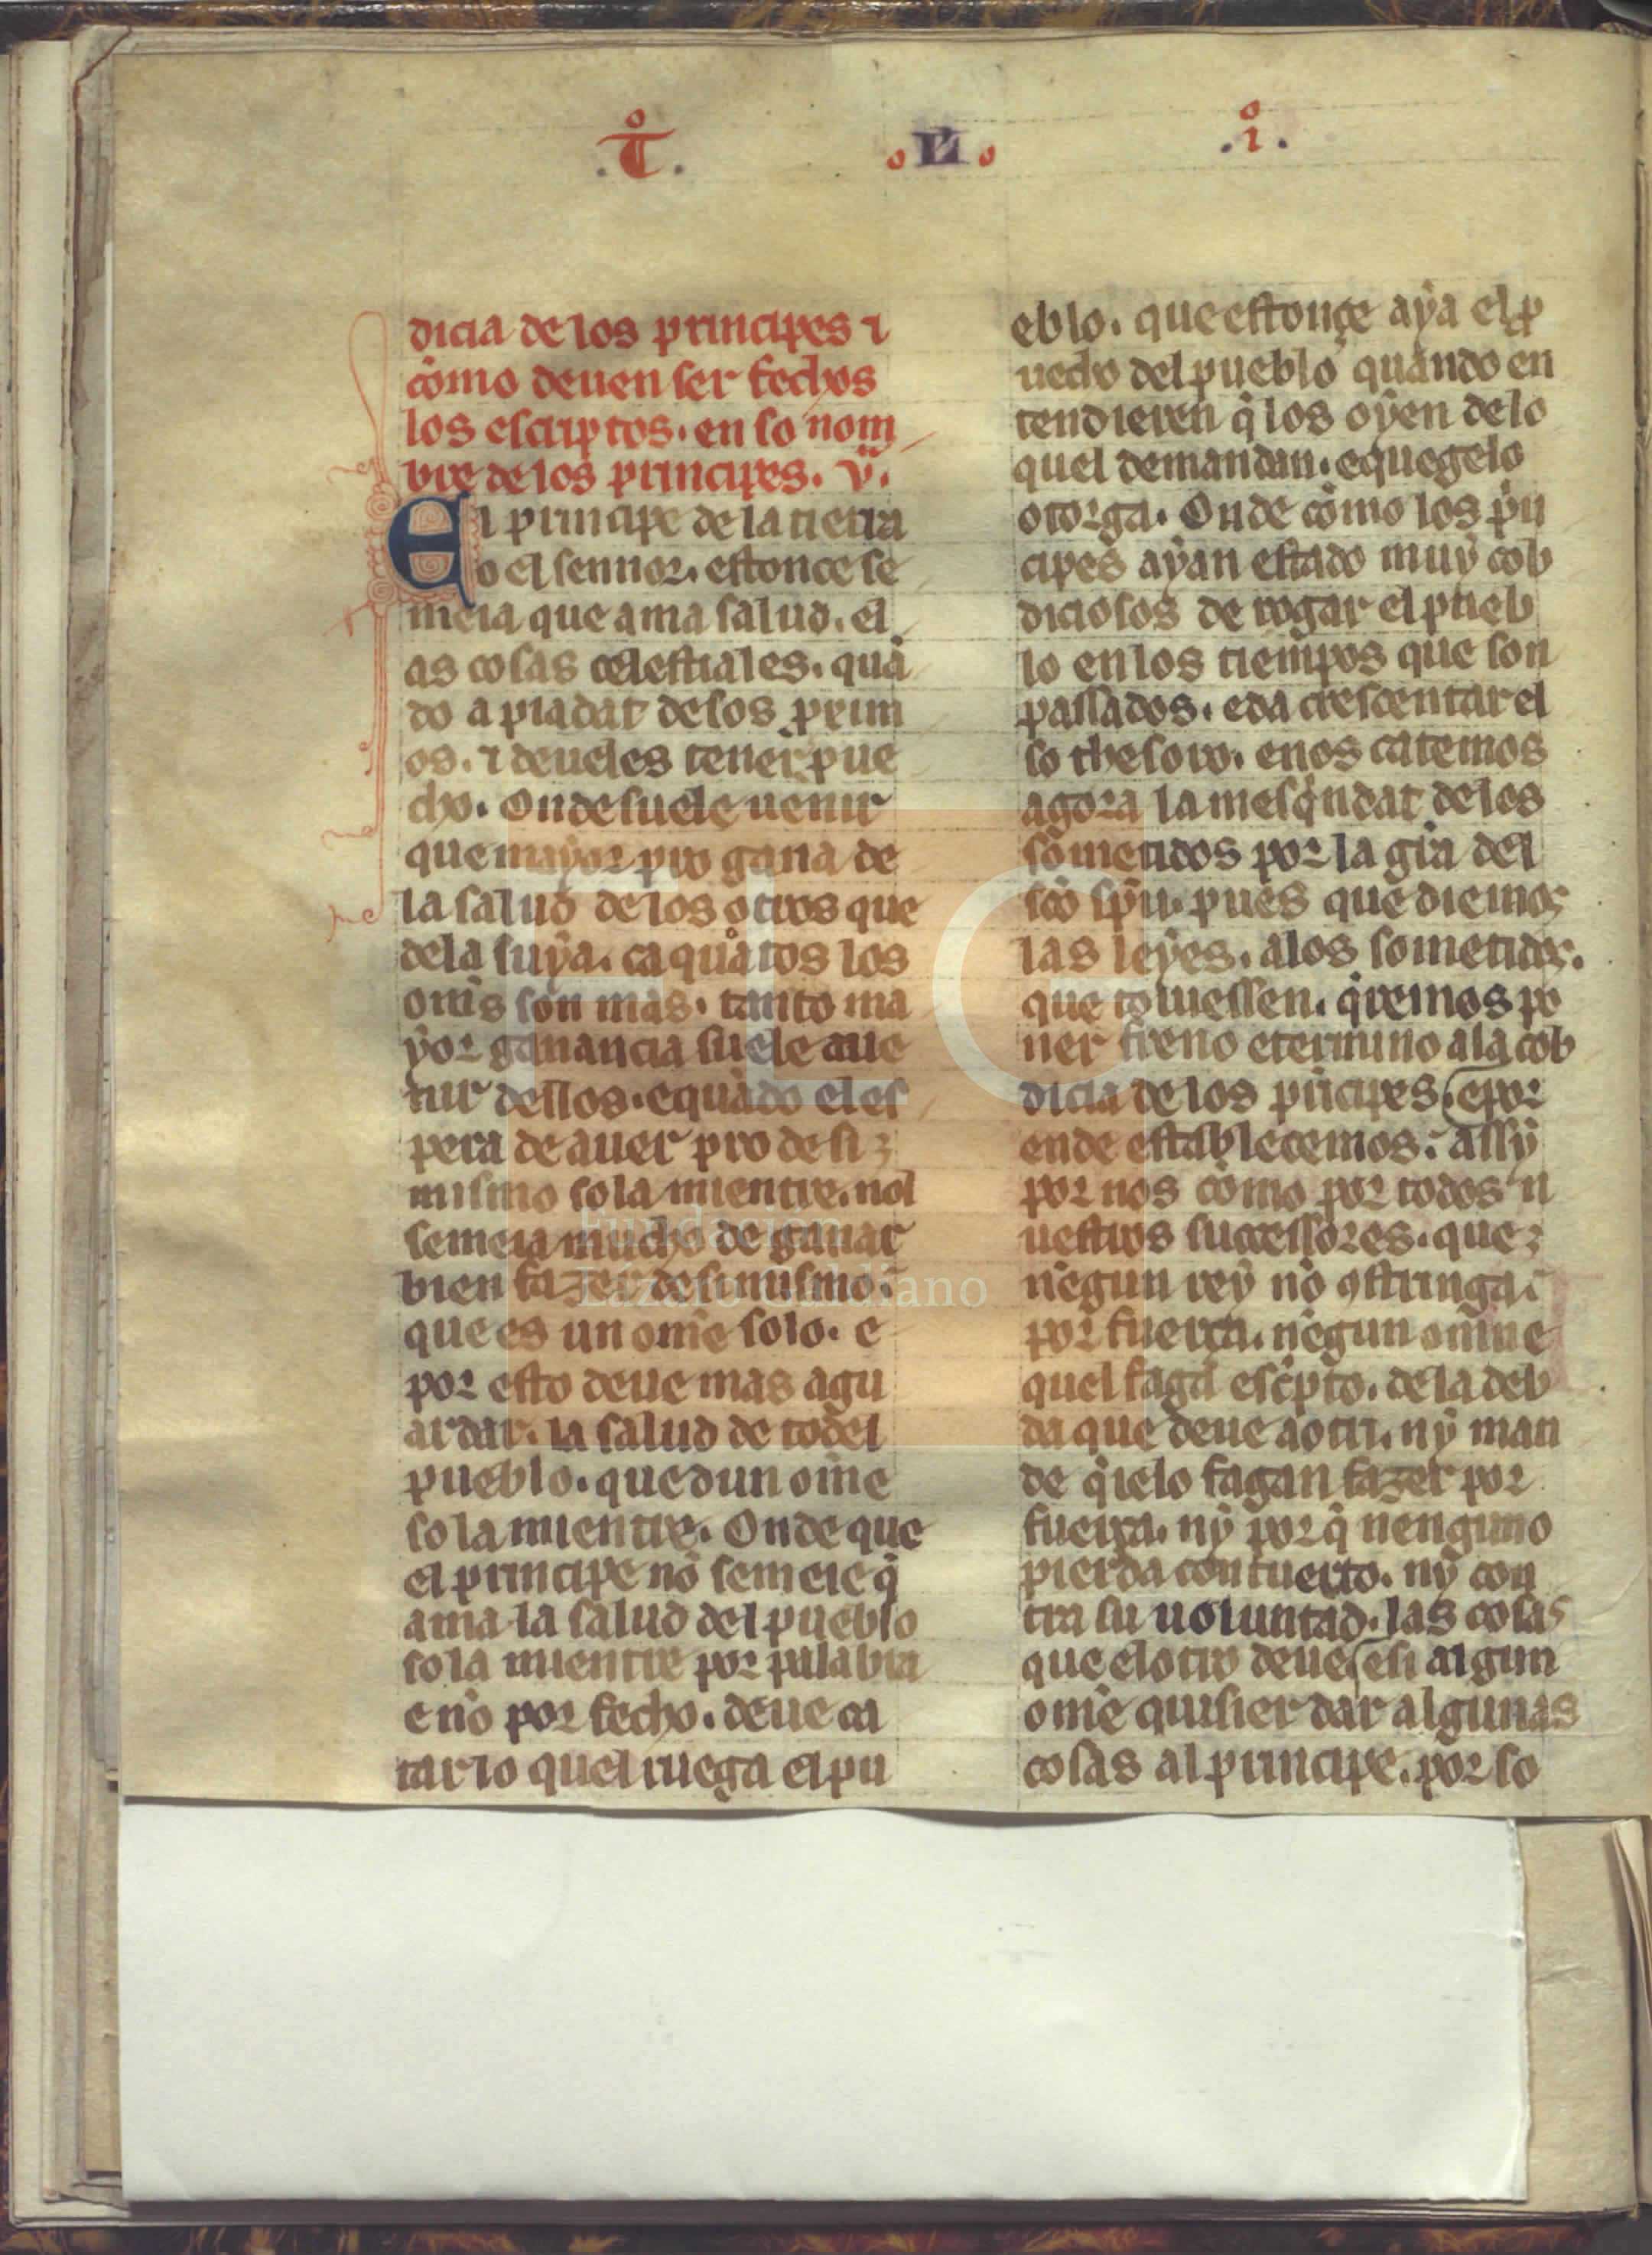 .Tº. .II. .iº.
dicia de los principes ⁊
como deuen ser fechos
los escriptos. en so nom
bre de los principes. vº.
El principe de la tierra
o el sennor. estonce se
meia que ama salud. el
as cosas celestiales. quā
do a piadat de sos prim
os. ⁊ deueles tener ꝓue
cho. Onde suele uenir
que mayor pro gana de
la salud de los otros que
de la suya. ca quātos los
om̄s son mas. tanto ma
yor ganancia suele aue
nir dellos. e quādo el es
pera de auer pro de si
mismo sola mientre. nol
semeia mucho de ganar
bien fazer de si mismo.
que es un om̄e solo. e
por esto deue mas agu
ardar. la salud de todel
pueblo. que dun om̄e
sola mientre. Onde que
el principe nō semeie q̄
ama la salud del pueblo
sola mientre por palabra
e nō por fecho. deue ca
tar lo quel ruega el pu
eblo. que estonçe aya el ꝓ
uecho del pueblo quando en
tendieren q̄ los oyen de lo
quel demandan. e que gelo
otorga. Onde como los p̄n
cipes ayan estado muy cob
diciosos de rogar el pueb
lo en los tiempos que son
passados. e da crescentar el
so thesoro. e nos catemos
agora la mesq̄ndat de los
sometidos por la gr̄a del
sc̄o sp̄u. pues que diemos
las leyes. a los sometidos.
que touiessen. q̄remos po
ner freno e termino a la cob
dicia de los p̄ncipes. e por
ende establecemos. assy
por nos como por todos n
uestros successores. que
nēgun rey nō ꝯstringa.
por fuerça. nēgun omne
quel faga esc̄pto. de la deb
da que deue a otri. ny man
de q̄ielo fagan fazer por
fuerça. ny por q̄ nenguno
pierda con tuerto. ny con
tra su uoluntad. las cosas
que el otro deue. e si algun
om̄e quisier dar algunas
cosas al principe. por so
Fundación
Lázaro Galdiano